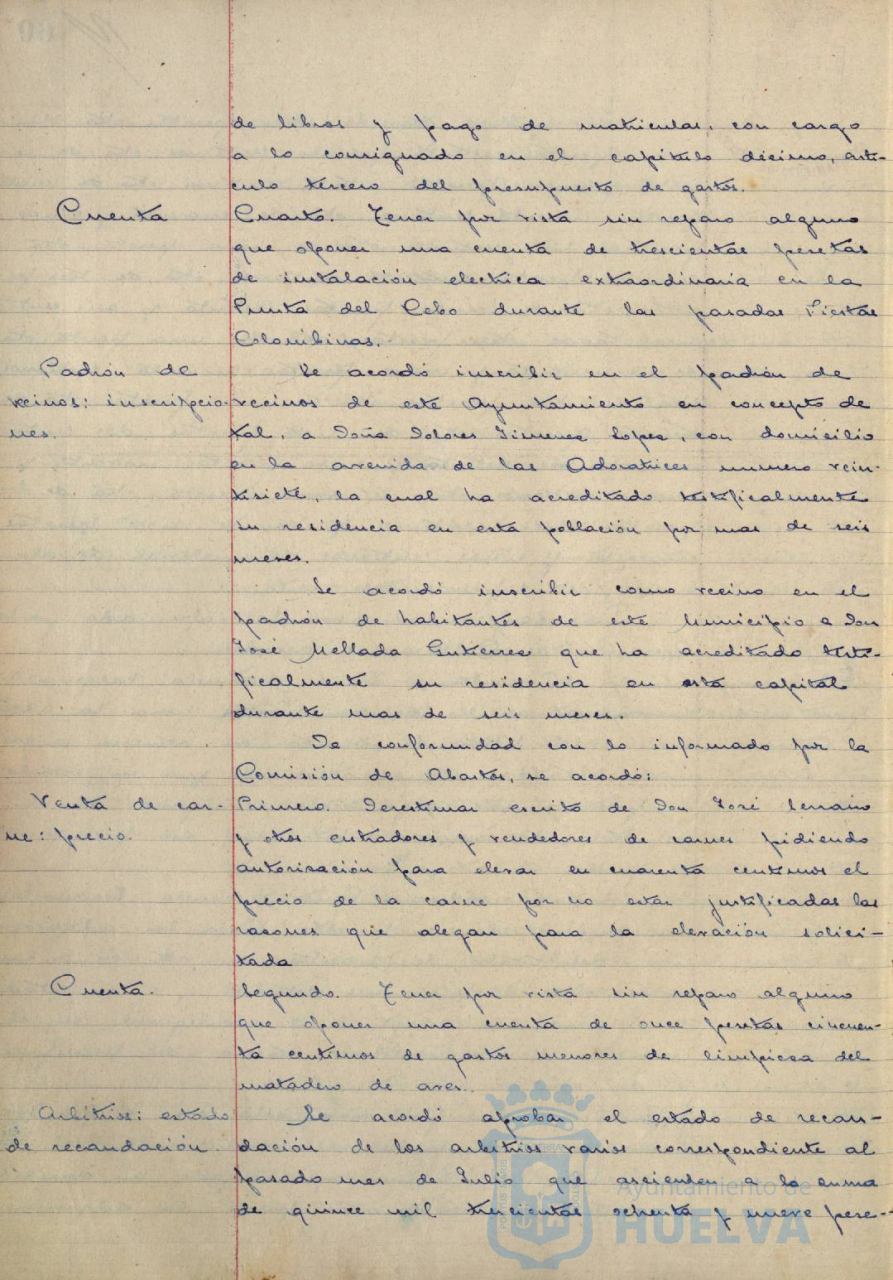 de libros y pago de matriculas, con cargo
a lo consignado en el capitulo décimo, arti-
culo tercero del presupuesto de gastos.
Cuenta
Cuarto. Tener por vista sin reparo alguno
que oponer una cuenta de trescientas pesetas
de instalación electrica extraordinaria en la
Punta del Cebo durante las pasadas Fiestas
Colombinas.
Padrón de
vecinos: inscripcio-
nes.
Se acordó inscribir en el padrón de
vecinos de este Ayuntamiento en concepto de
tal, a Doña Dolores Jimenez Lopez, con domicilio
en la avenida de las Adoratrices numero vein-
tisiete, la cual ha acreditado testificalmente
su residencia en esta población por mas de seis
meses.
Se acordó inscribir como vecino en el
padrón de habitantes de este Municipio a Don
José Mellada Gutierrez que ha acreditado testi-
ficalmente su residencia en esta capital
durante mas de seis meses.
De conformidad con lo informado por la
Comisión de Abastos, se acordó:
Venta de car-
ne: precio.
Primero. Desestimar escrito de Don José Serrano
y otros entradores y vendedores de carnes pidiendo
autorización para elevar en cuarenta centimos el
precio de la carne por no estar justificadas las
razones que alegan para la elevación solici-
tada
Cuenta.
Segundo. Tener por vista sin reparo alguno
que oponer una cuenta de once pesetas cincuen-
ta centimos de gastos menores de limpieza del
matadero de aves.
Arbitrios: estado
de recaudación.
Se acordó aprobar el estado de recau-
dación de los arbitrios varios correspondiente al
pasado mes de Julio que ascienden a la suma
de quince mil trescientas ochenta y nueve pese-
Ayuntamiento de
HUELVA